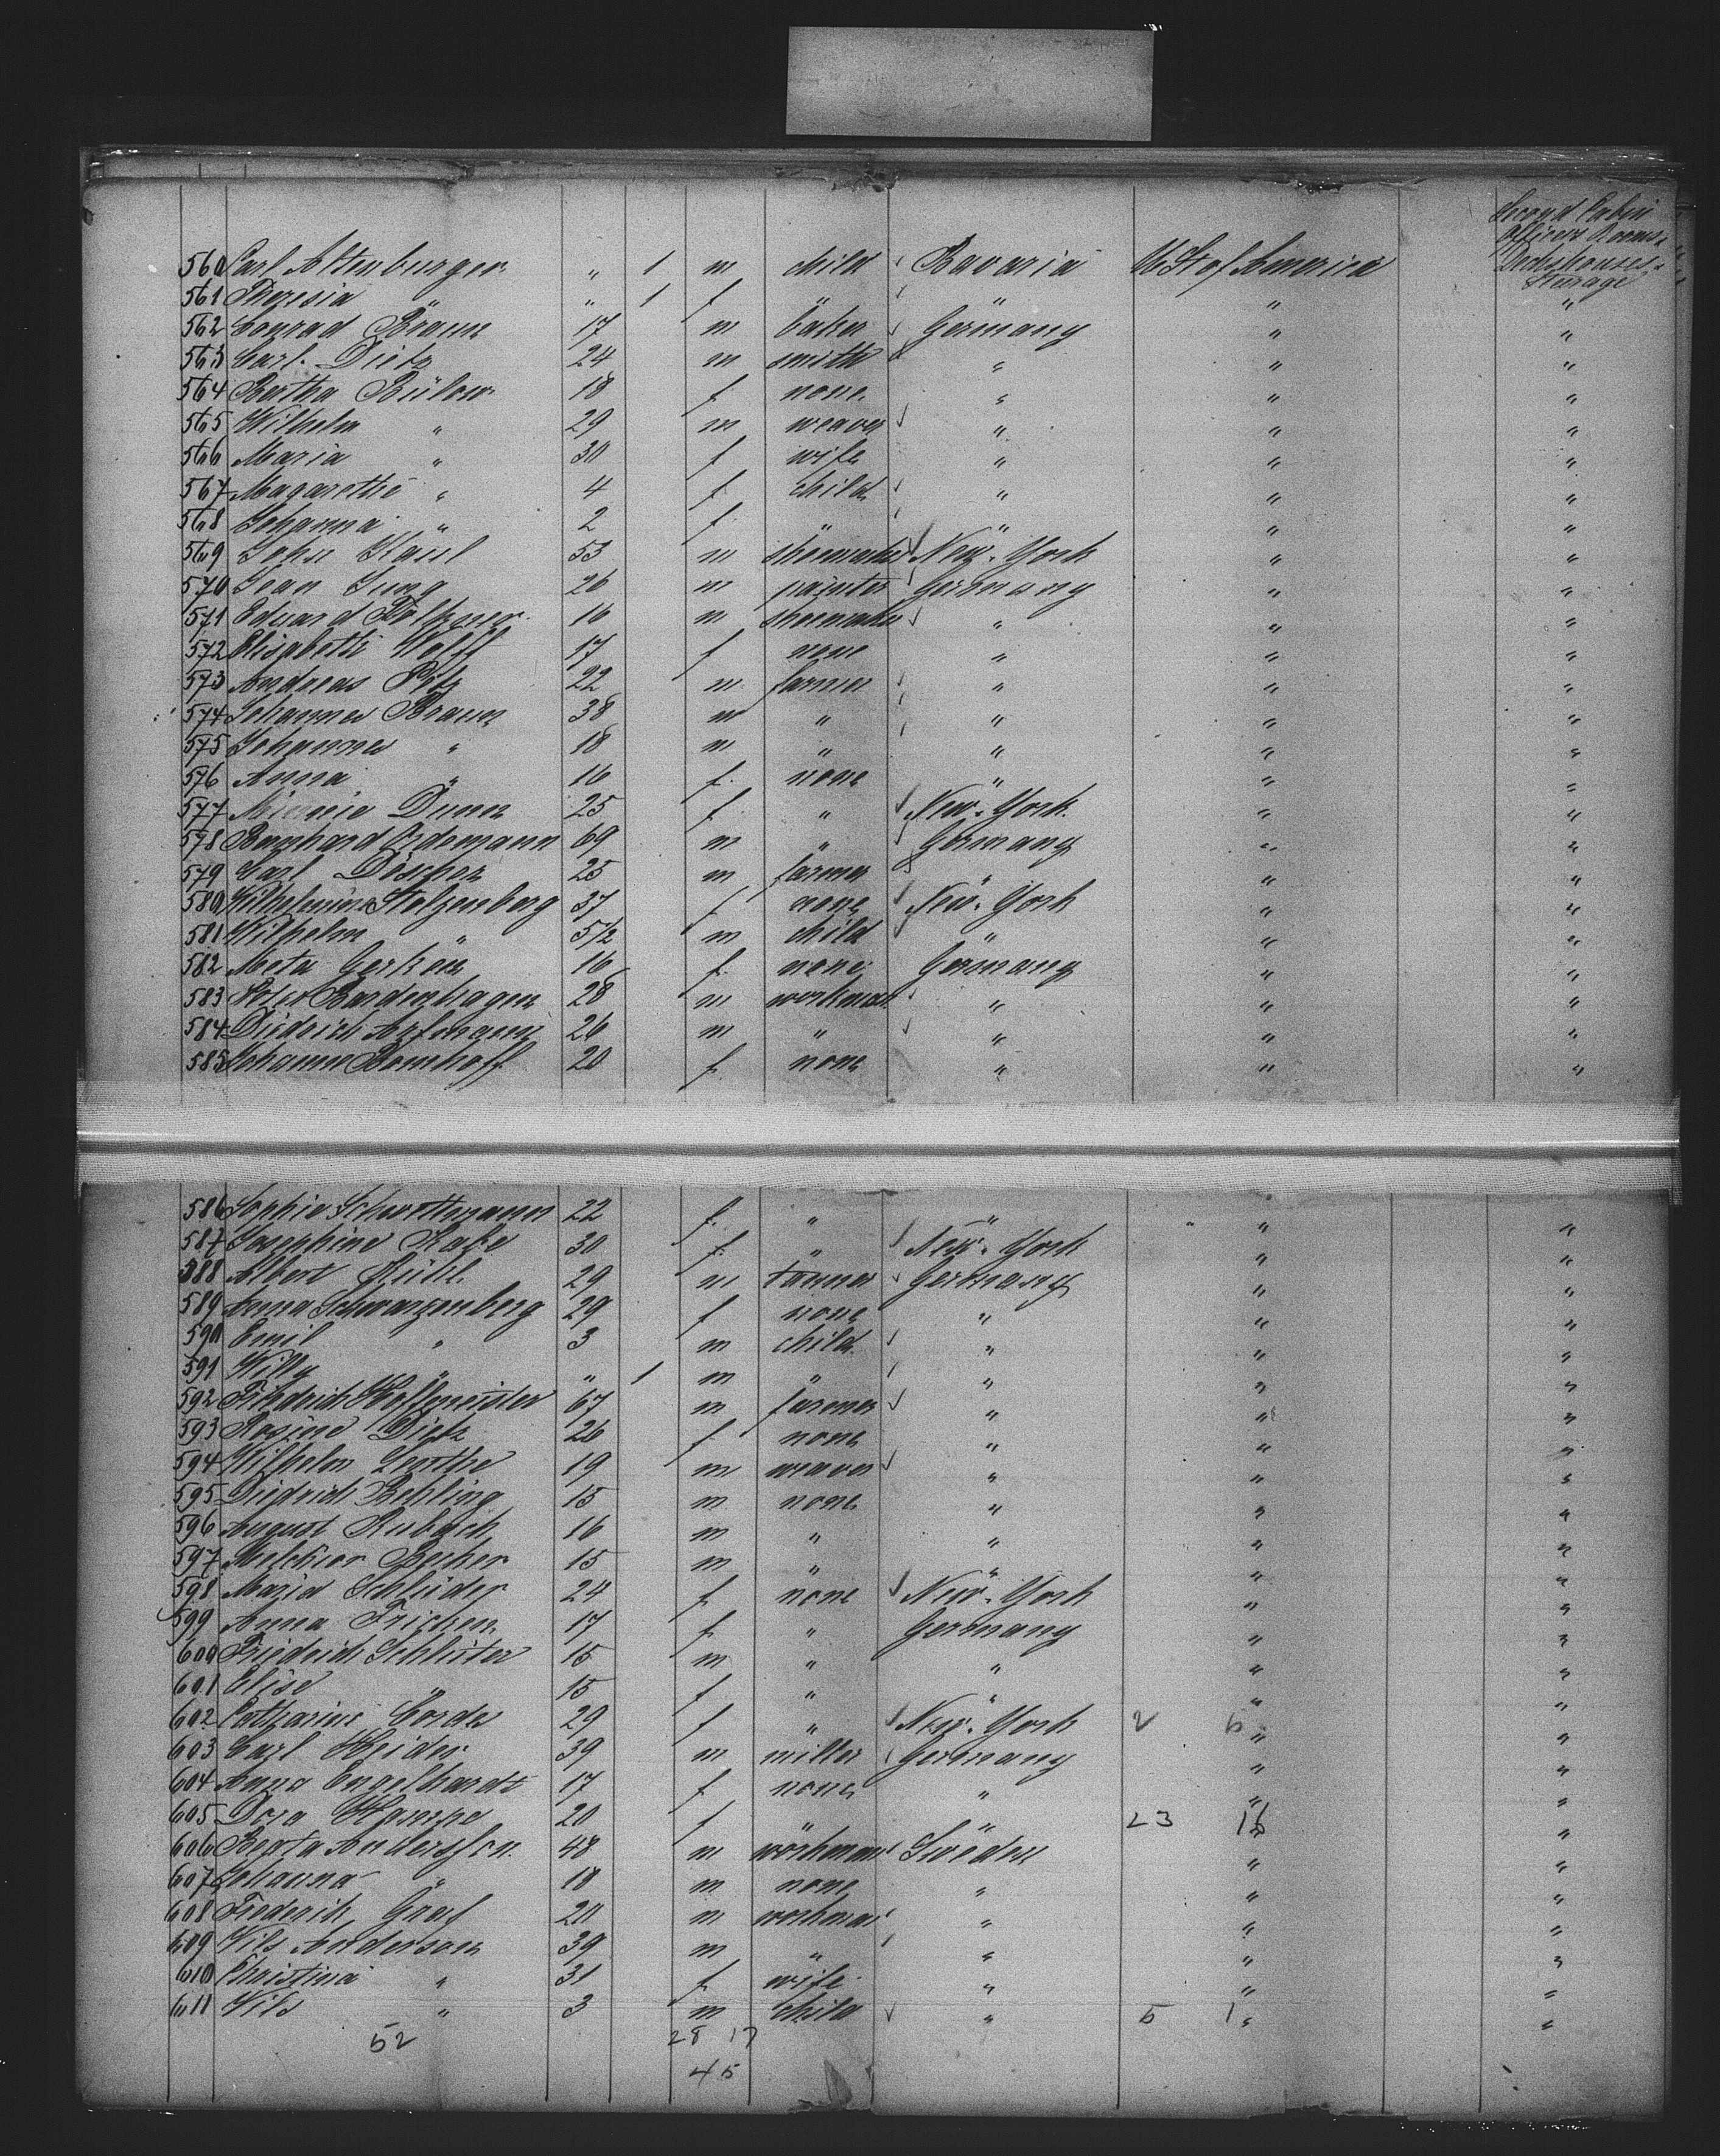 Second Cabin
Officers Rooms
Deckshouses
Steerage
560 Carl Altenburger " 1 m child Bavaria U St of America
561 Theresia " " 1 f " " " "
562 Conrad Braun 17 m baker Germany " "
563 Carl Dietz 24 m smith " " "
564 Bertha Bülow 18 f none " " "
565 Wilhelm " 29 m weaver " " "
566 Maria " 30 f wife " " "
567 Magarethe " 4 f child " " "
568 Johanna " 2 f " " " "
569 John 53 m shoemaker New-York " "
570 Jean Jung 26 m painter Germany " "
571 Eduard 16 m shoemaker " " "
572 Elisabeth Wolff 17 f none " " "
573 Andreas 22 m farmer " " "
574 Johannes Braun 38 m " " " "
575 Johannes " 18 m " " " "
576 Anna " 16 f none " " "
577 Minnie Dunn 25 f " New-York " "
578 Bernhard Ordemann 69 m " Germany " "
579 Carl Döscher 25 m farmer " " "
580 Wilhelmine Stelzenberg 37 f none New-York " "
581 Wilhelm " 5/2 m child " " "
582 Meta Gerken 16 f none Germany " "
583 Peter Bardenhagen 28 m workman " " "
584 Diedrich 26 m " " " "
585 Johanne Bomhoff 20 f none " " "
586 Sophie Schwettmann 22 f " " " "
587 Josephine Rabe 30 f " New-York " "
588 Albert 29 m tanner Germany " "
589 Anna Schwarzenberg 29 f none " " "
590 Emil " 3 m child " " "
591 Willy " " 1 m " " " "
592 Friedrich Hoffmeister 67 m farmer " " "
593 Rosine Dietz 26 f none " " "
594 Wilhelm 19 m weaver " " "
595 Diedrich Behling 15 m none " " "
596 August Rubach 16 m " " " "
597 Melchior Becher 15 m " " " "
598 Maria Schlüder 24 f none New-York " "
599 Anna Fricken 17 f " Germany " "
600 Friedrich Schlüter 15 m " " " "
601 Elise " 15 f " " " "
602 Catharine Cordes 29 f " New-York 2 6 " "
603 Carl Heider 39 m miller Germany " "
604 Anna Engelhardt 17 f none " " "
605 Dora Hampe 20 f " " 23 16 " "
606 Berta Andersson 48 m workman Sweden " "
607 Johanna " 18 m none " " "
608 Frederik Graf 20 m workman " " "
609 Nils Anderson 39 m " " " "
610 Christina " 31 f wife " " "
611 Nils " 3 m child " 5 1 " "
52 28 17
45